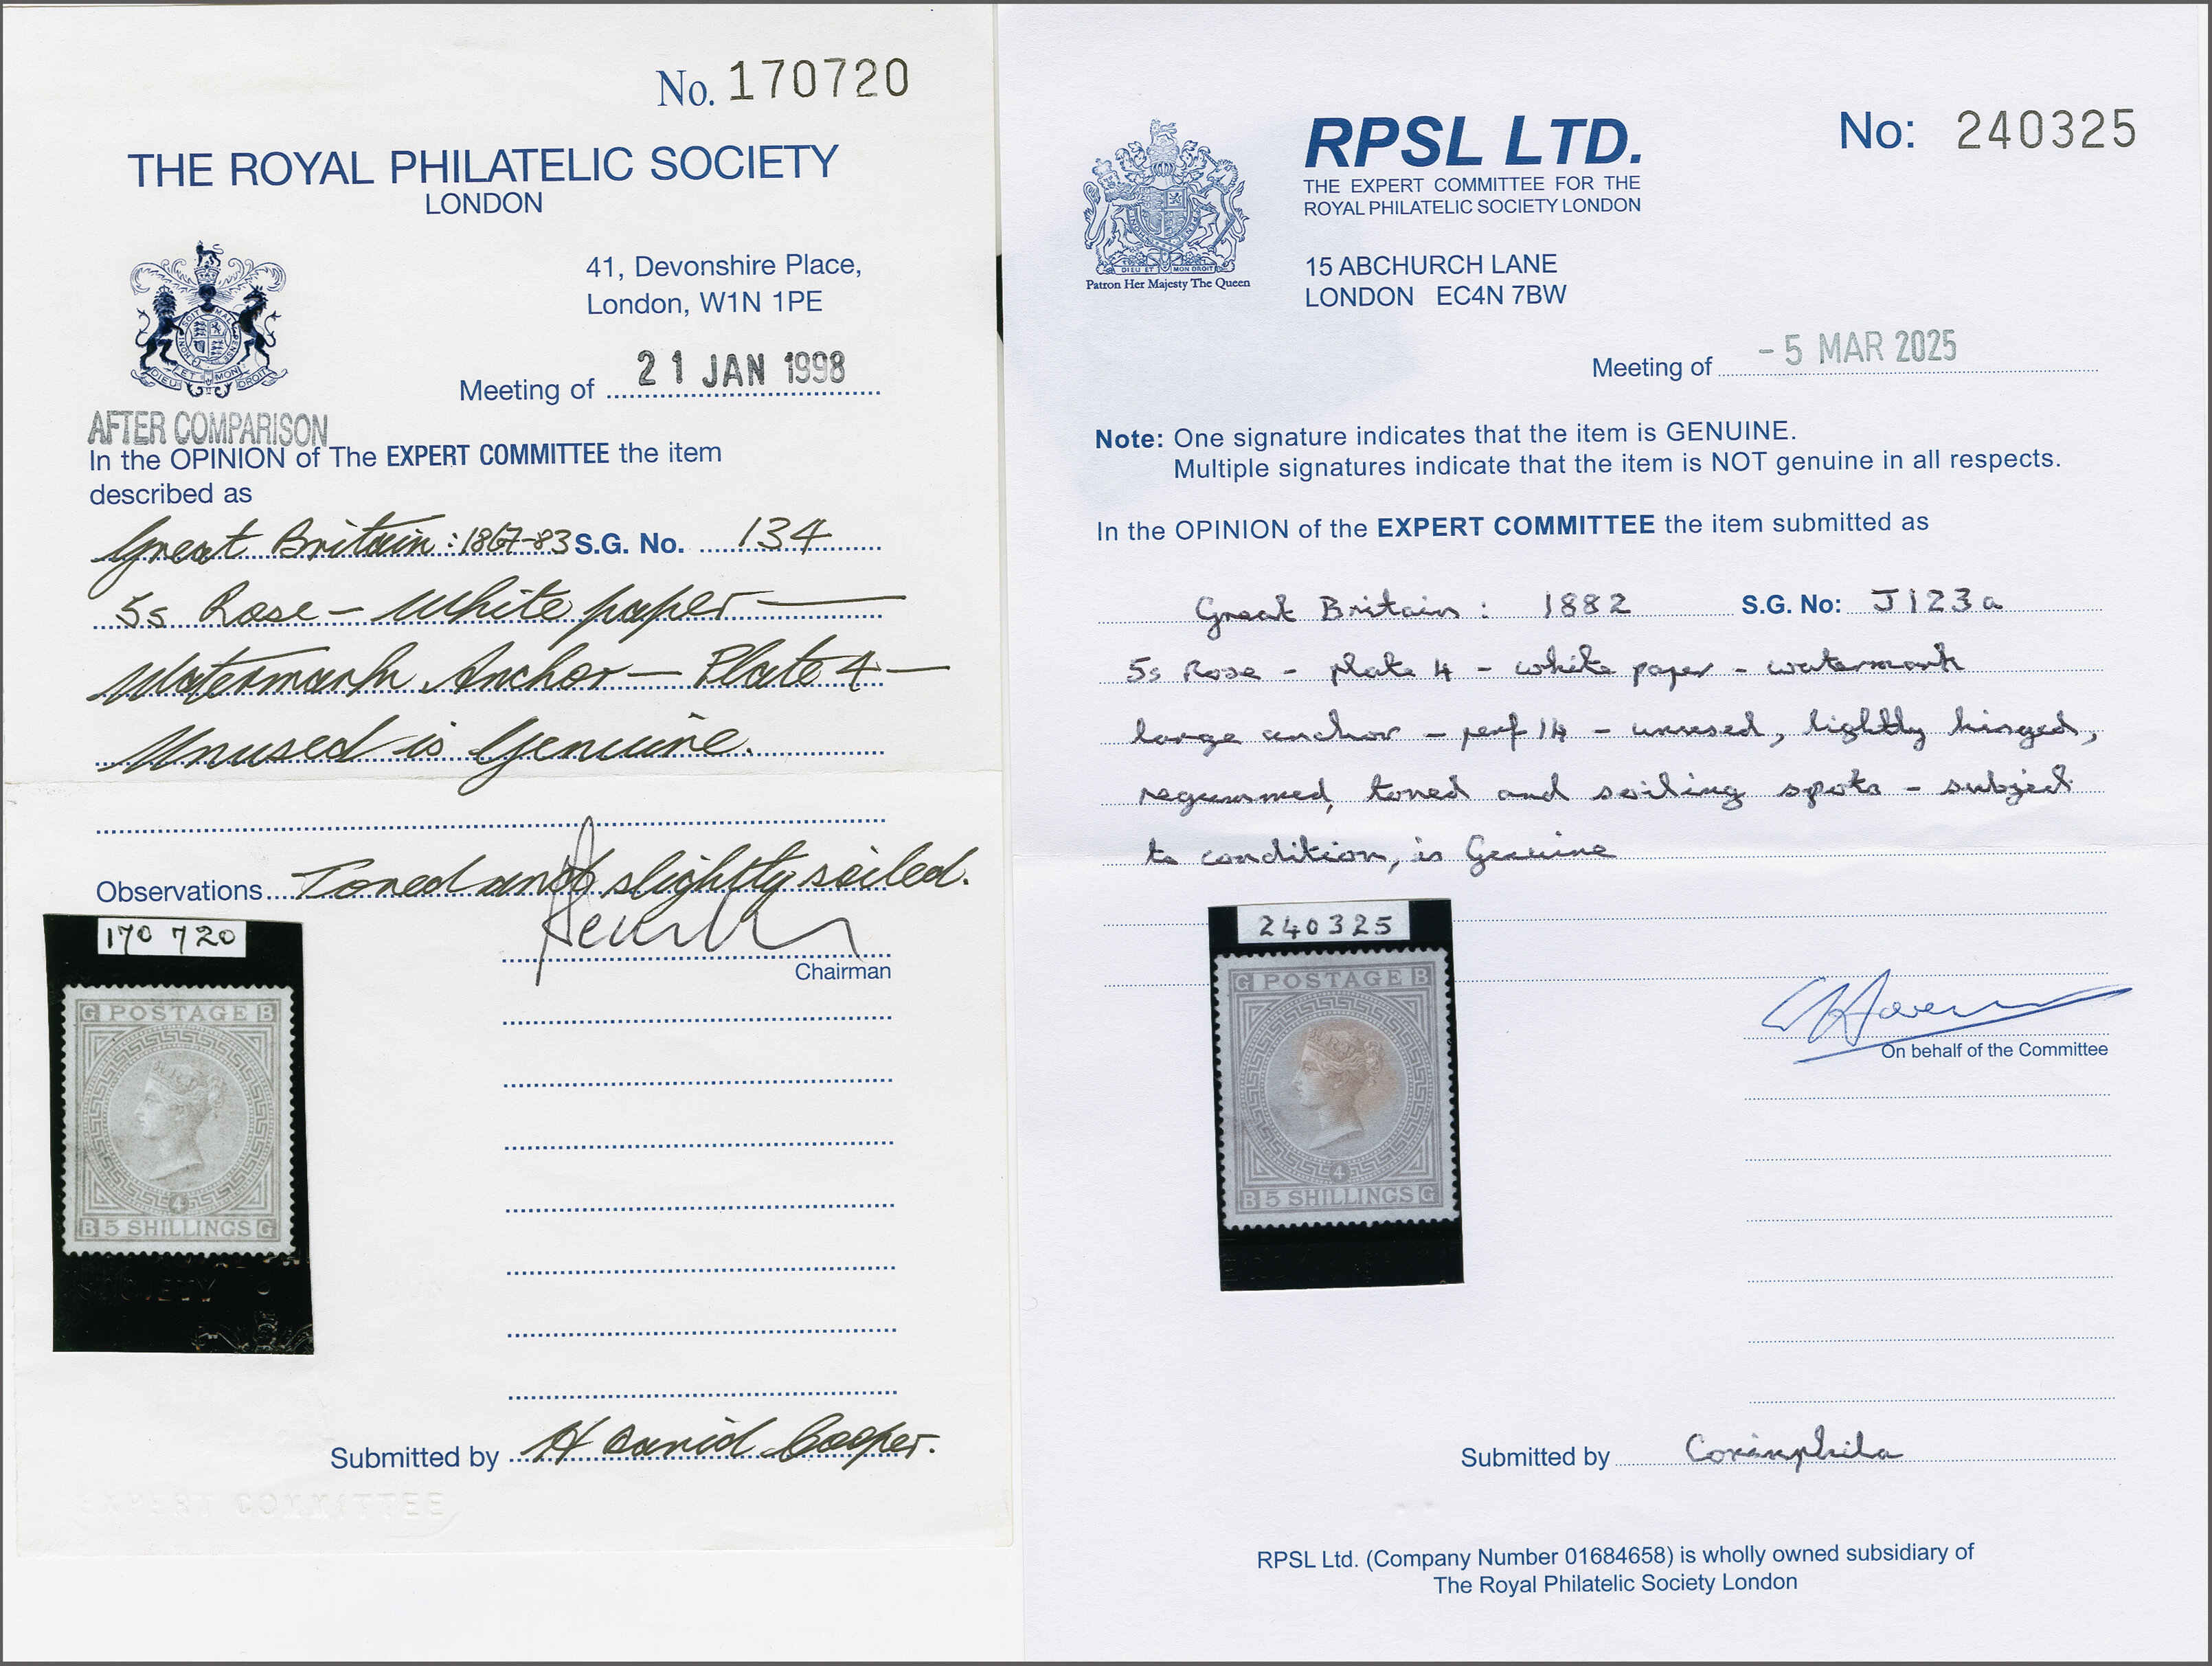 No. 170720
THE ROYAL PHILATELIC SOCIETY
LONDON
41, Devonshire Place,
London, W1N 1PE
Meeting of 21 JAN 1998
AFTER COMPARISON
In the OPINION of The EXPERT COMMITTEE the item
described as
Great Britain: 1867-83 S.G. No. 134
5s Rose - White paper -
Watermark Anchor - Plate 4 -
Unused is Genuine.
Observations Toned and slightly soiled.
Chairman
170 720
G POSTAGE B
4
B 5 SHILLINGS G
SOCIETY
Submitted by H David Cooper.
EXPERT COMMITTEE
No: 240325
RPSL LTD.
THE EXPERT COMMITTEE FOR THE
ROYAL PHILATELIC SOCIETY LONDON
DIEU ET MON DROIT
Patron Her Majesty The Queen
15 ABCHURCH LANE
LONDON EC4N 7BW
Meeting of - 5 MAR 2025
Note: One signature indicates that the item is GENUINE.
Multiple signatures indicate that the item is NOT genuine in all respects.
In the OPINION of the EXPERT COMMITTEE the item submitted as
Great Britain: 1882 S.G. No: J123a
5s Rose - plate 4 - white paper - watermark
large anchor - perf 14 - unused, lightly hinged,
regummed, toned and soiling spots - subject
to condition, is Genuine
240325
G POSTAGE B
4
B 5 SHILLINGS G
On behalf of the Committee
Submitted by Corinphila
RPSL Ltd. (Company Number 01684658) is wholly owned subsidiary of
The Royal Philatelic Society London